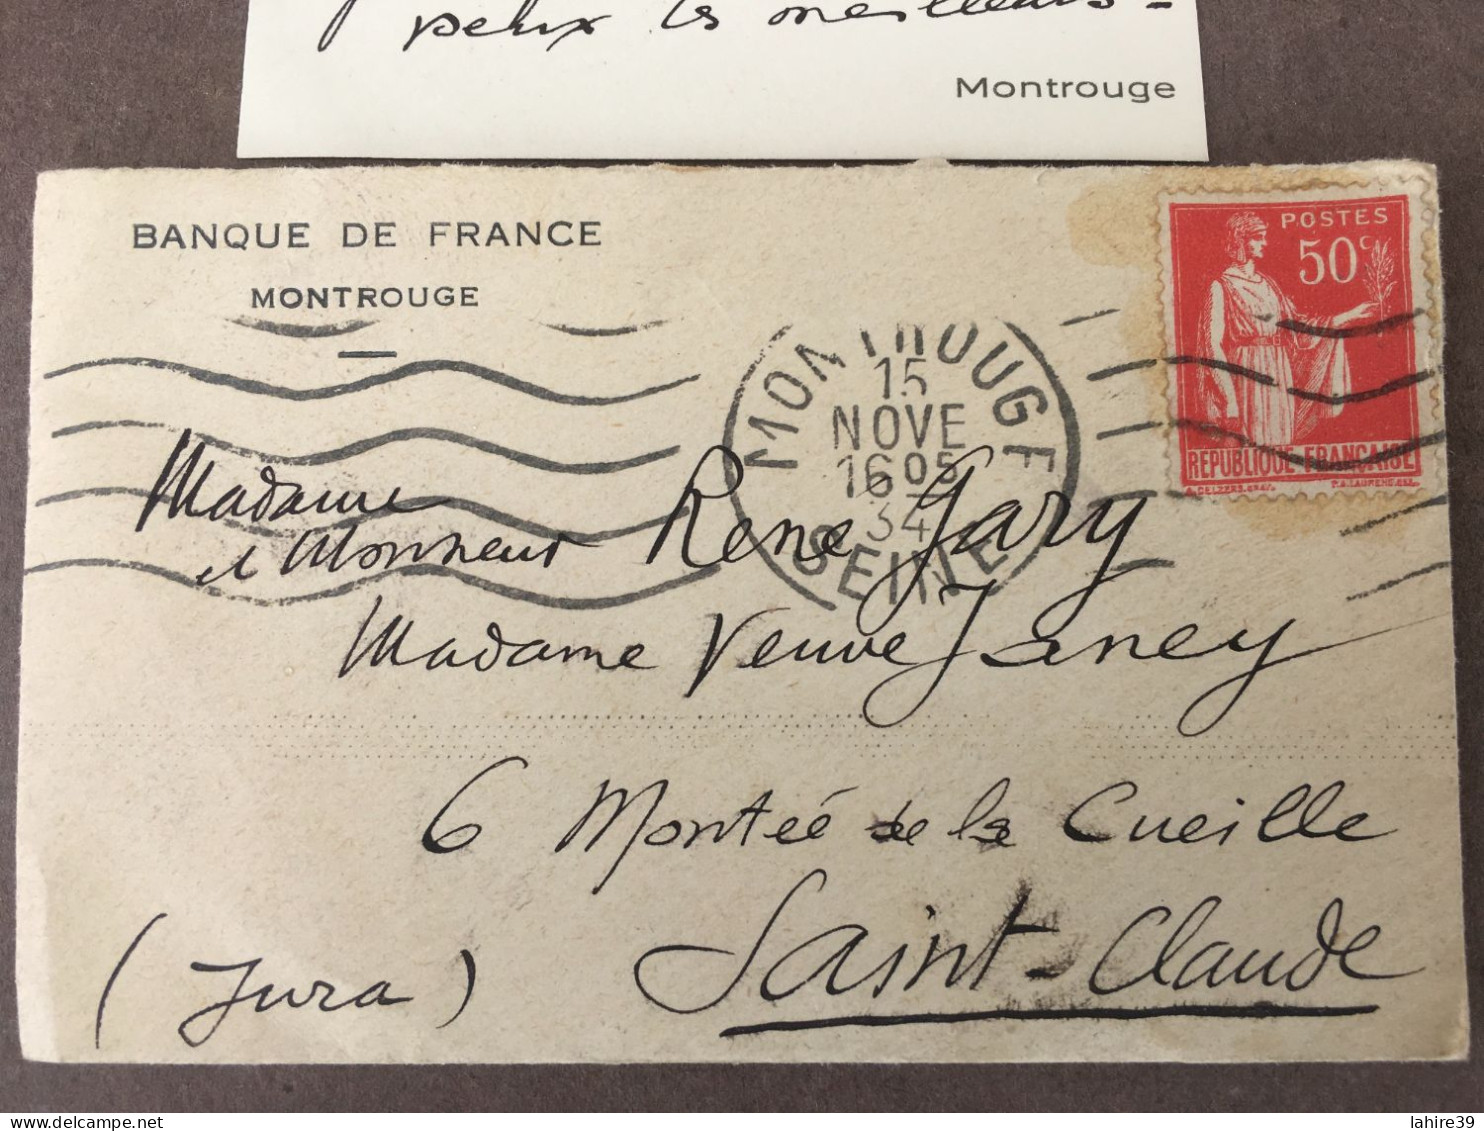 peux les meilleurs -
Montrouge
BANQUE DE FRANCE
MONTROUGE
POSTES
50c
REPUBLIQUE FRANÇAISE
MONTROUGE
15
NOVE
1605
34
SEINE
Madame
et Monsieur René Gary
Madame Veuve Janey
6 Montée de la Cueille
Saint-Claude
(Jura)
lahire39